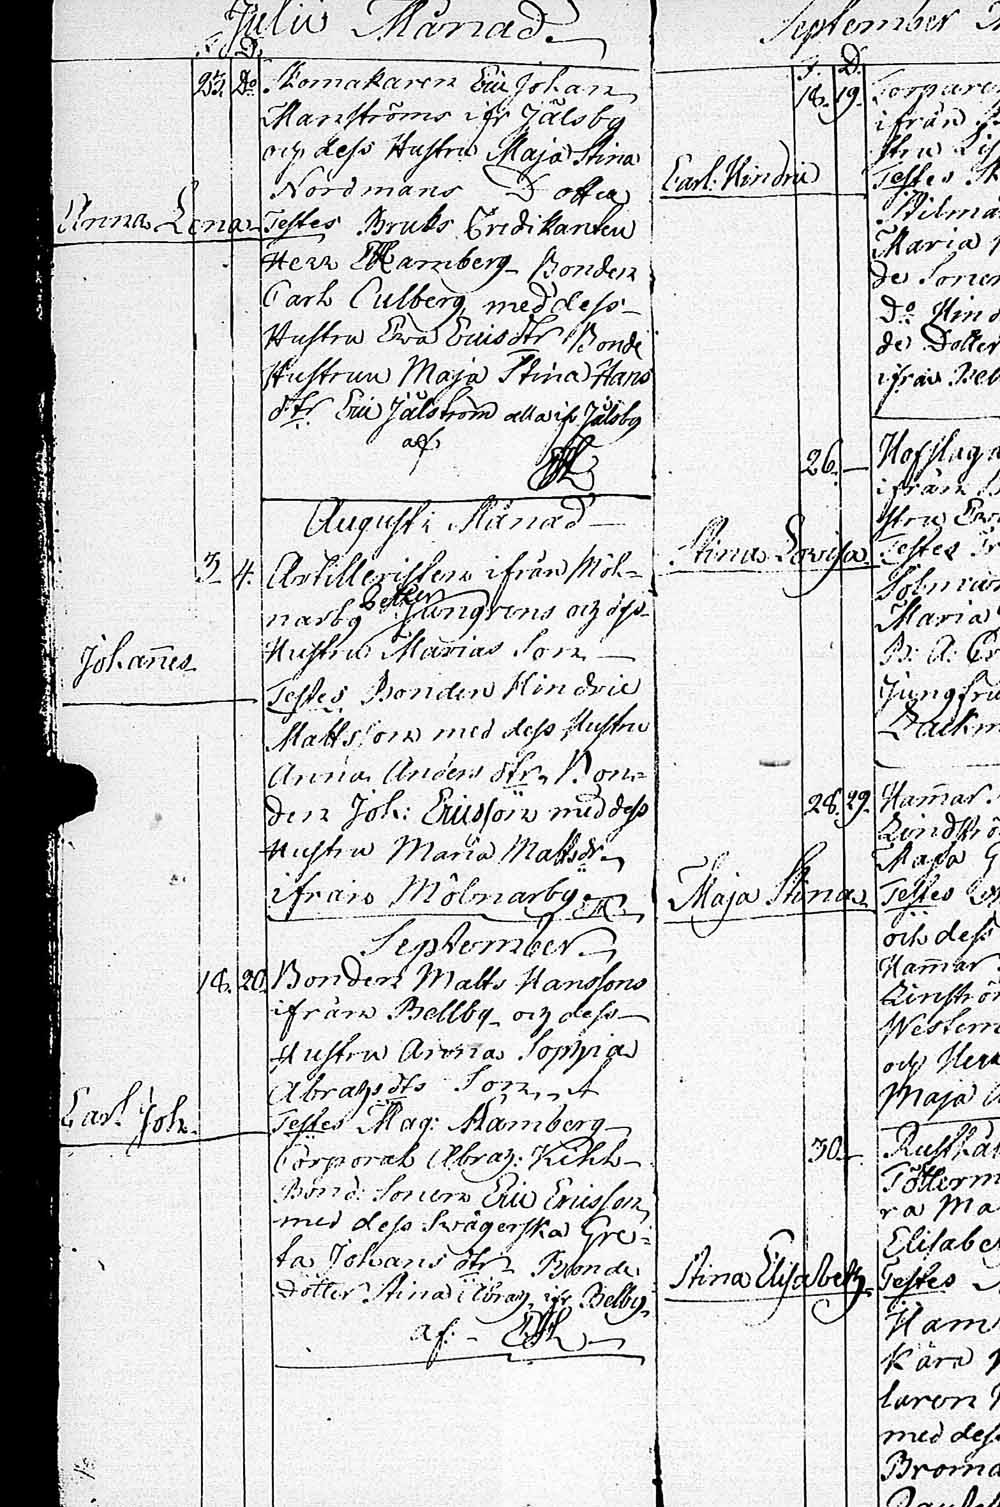 Julii Månad
F. D.
23. Do Skomakaren Eric Johan
Manströms ifr Jälsby
och dess Hustru Maja Stina
Nordmans Dotter
Anna Lena Testes Bruks Predikanten
Herr Mamberg Bonden
Carl Culberg med dess
Hustru Eva Ericsdtr Bonde
Hustrun Maja Stina Hans
dtr Eric Jälström alla ifr Jälsby
af
Augusti Månad
3 4. Artilleristen ifrån Möl-
narby Petter Jungrens och dess
Johan̄es Hustru Marias Son
Testes Bonden Hindric
Mattsson med dess Hustru
Anna Anders dtr, Bon=
den Joh: Ericsson med dess
Hustru Maria Mattsdr
ifrån Mölnarby
September
18. 20. Bonden Matts Hanssons
ifrån Bellby och dess
Hustru Anna Sophia
Abrahsdtrs Son
Carl Joh. Testes Mag: Mamberg
Corporal Abrah: Kihl
Bond: Sonen Eric Ericsson
med dess Svägerska Gre=
ta Johans dtr Bonde
dotter Stina Abrah, ifr Belby
af:
September
F. D.
18. 19. Torparen
ifrån
stru
Carl Hindric Testes
Maria
de Sonen
Do Hind
de Dotter
ifrån Bel
26. Hofslag
ifrån
stru
Stina Lovisa Testes
Maria
B: A:
Jungfru
Backm
28. 29. Ham̄ar
Lindströ
Maja G
Maja Stina Testes
och dess
Ham̄ar
Linströ
Western
och Herr
Maja
30.
Töllerm
ra Ma
Elisabet
Stina Elisabeth Testes
Ham
Kära
laren
med dess
Broma